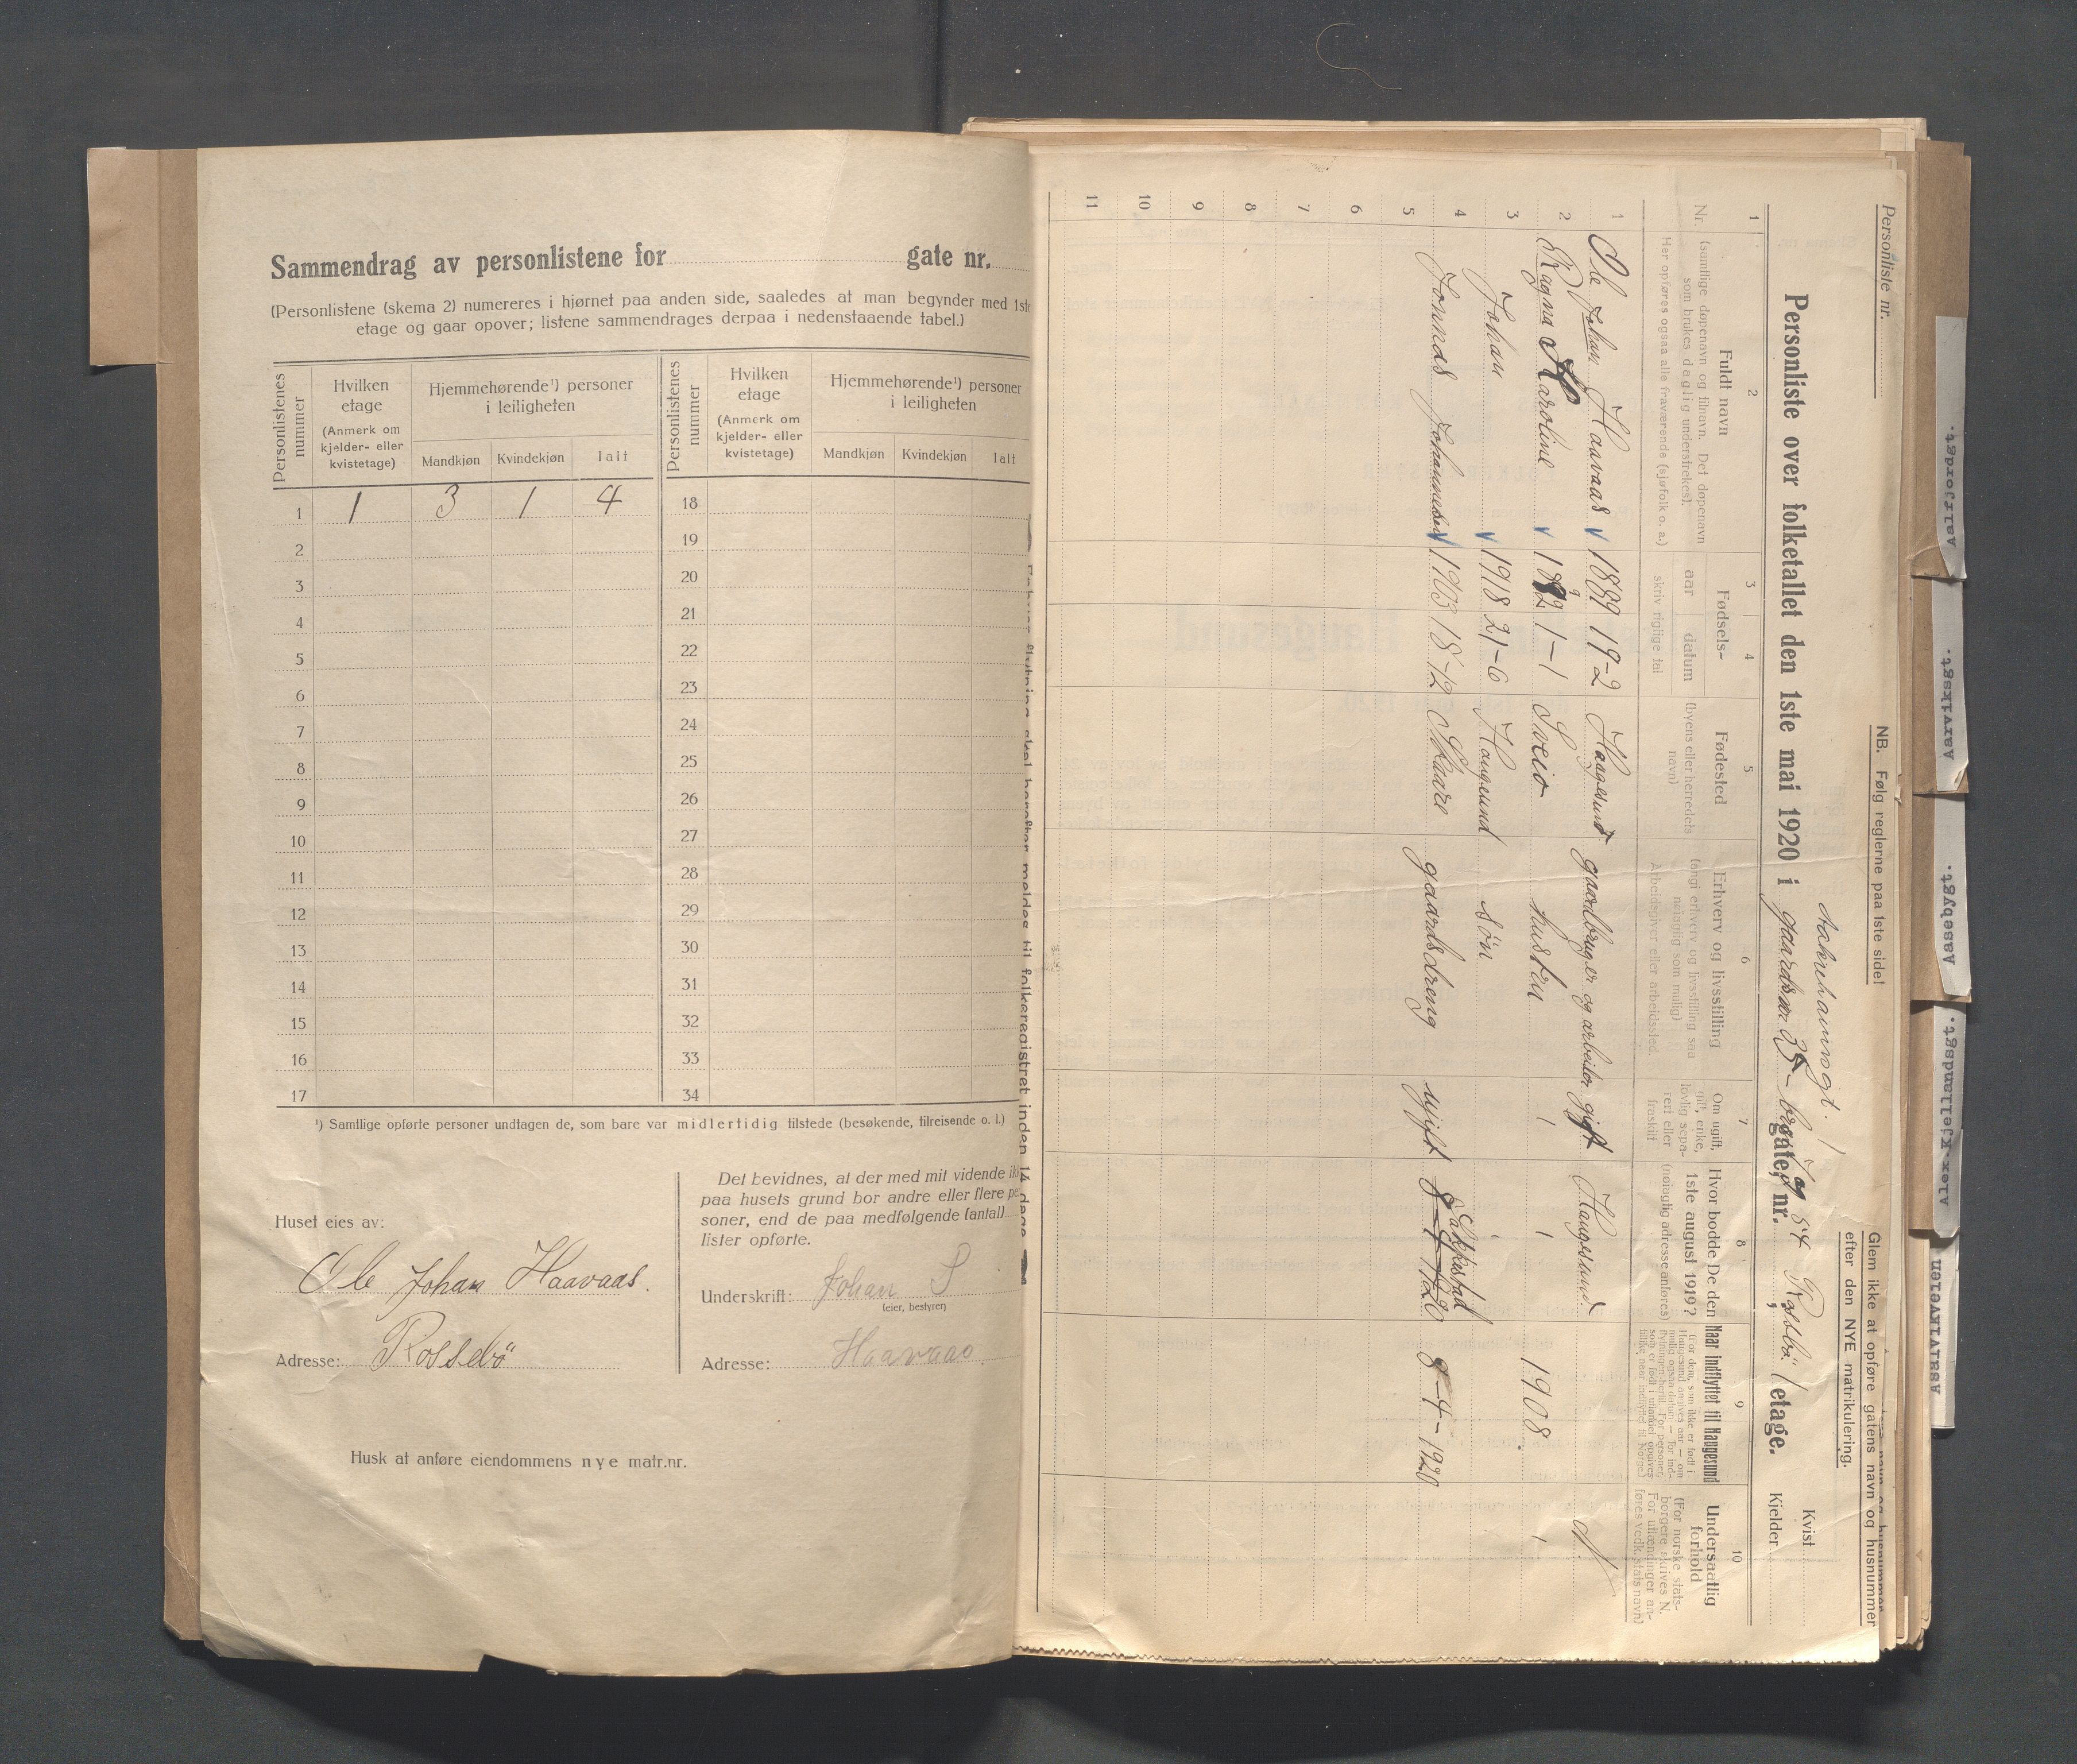 Sammendrag av personlistene for gate nr.
(Personlistene (skema 2) numereres i hjørnet paa anden side, saaledes at man begynder med 1ste
etage og gaar opover; listene sammendrages derpaa i nedenstaaende tabel.)
Personlistenes nummer
Hvilken etage
(Anmerk om kjelder- eller kvistetage)
Hjemmehørende¹) personer i leiligheten
Mandkjøn Kvindekjøn Ialt
Personlistenes nummer
Hvilken etage
(Anmerk om kjelder- eller kvistetage)
Hjemmehørende¹) personer i leiligheten
Mandkjøn Kvindekjøn Ialt
1 1 3 1 4 18
2 19
3 20
4 21
5 22
6 23
7 24
8 25
9 26
10 27
11 28
12 29
13 30
14 31
15 32
16 33
17 34
¹) Samtlige opførte personer undtagen de, som bare var midlertidig tilstede (besøkende, tilreisende o. l.)
Huset eies av:
Ole Johan Haavaas.
Adresse: Rossebö
Det bevidnes, at der med mit vidende
paa husets grund bor andre eller flere
soner, end de paa medfølgende (antal)
lister opførte.
Underskrift: Johan S
(eier, bestyrer)
Adresse: Haavaas
Husk at anføre eiendommens nye matr.nr.
meldes til folkeregistret inden 14 dage
Personliste nr.
NB. Følg reglerne paa 1ste side!
Glem ikke at opføre gatens navn og husnummer
efter den NYE matrikulering.
Personliste over folketallet den 1ste mai 1920 i gate, nr. Rossebö. 1 etage.
Kvist
Kjelder
1 2 3 4 5 6 7 8 9 10
Nr.
Fuldt navn
(samtlige døpenavn og tilnavn. Det døpenavn
som brukes daglig understrekes).
Her opføres ogsaa alle fraværende (sjøfolk o. a.)
Fødsels-
aar datum
skriv rigtige tal
Fødested
(byens eller herredets
navn)
Erhverv og livsstilling
(angi erhverv og livsstilling saa
nøiagtig som mulig)
Arbeidsgiver eller arbeidssted.
Om ugift,
gift, enke,
lovlig sepa-
rert eller
fraskilt
Hvor bodde De den
1ste august 1919?
(nøiagtig adresse anføres)
Naar indflyttet til Haugesund
Undersaatlig
forhold
(For norske stats-
borgere skrives N.
For utlændinger an-
føres vedk. stats navn)
1 Ole Johan Haavaas v 1889 19-2 Haugesund gaardbruger og arbeider gift Haugesund. N
2 Ragna Karoline v 1-1 Sveio hustru 1908.
3 Johan v 1918 21-6 Haugesund søn
4 Johannesen v 1903 18-12 Skaare gaardsdreng ugift 8-4-1920
5
6
7
8
9
10
11
Aalfjordgt.
Aarviksgt.
Aasebygt.
Alex.Kjellandsgt.
Asalvikveien